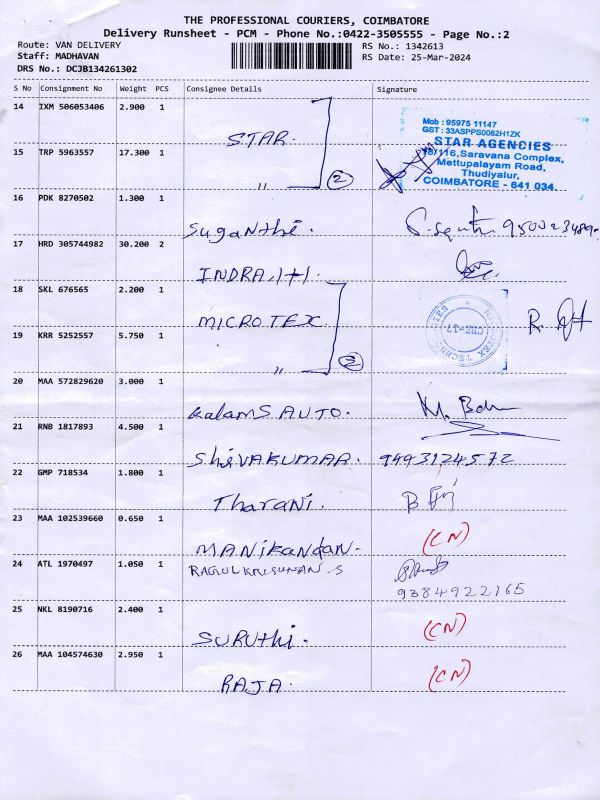 THE PROFESSIONAL COURIERS, COIMBATORE
Delivery Runsheet - PCM - Phone No.:0422-3505555 - Page No.:2
Route: VAN DELIVERY
RS No.: 1342613
Staff: MADHAVAN
RS Date: 25-Mar-2024
DRS No.: DCJB134261302
S No Consignment No Weight PCS Consignee Details Signature
14 IXM 506053406 2.900 1
STAR.
Mob : 95975 11147
GST : 33ASPPS0082H1ZK
STAR AGENCIES
18/116,Saravana Complex,
Mettupalayam Road,
Thudiyalur,
COIMBATORE - 641 034.
15 TRP 5963557 17.300 1
" 2
16 PDK 8270502 1.300 1
SuGaNthi.
17 HRD 305744982 30.200 2
INDRA.1+1.
18 SKL 676565 2.200 1
MICROTEX.
MICROTEX TECHNOLOGIES
CBE-17
19 KRR 5252557 5.750 1
"
20 MAA 572829620 3.000 1
KalamS AUTO.
21 RNB 1817893 4.500 1
ShiVAKUMAR. 9493124572
22 GMP 718534 1.800 1
TharaNi.
23 MAA 102539660 0.650 1
MANiKandan. (CN)
24 ATL 1970497 1.050 1
RAGULKRISHNAN.S
9384922165
25 NKL 8190716 2.400 1
SURUthi. (CN)
26 MAA 104574630 2.950 1
RAJA. (CN)